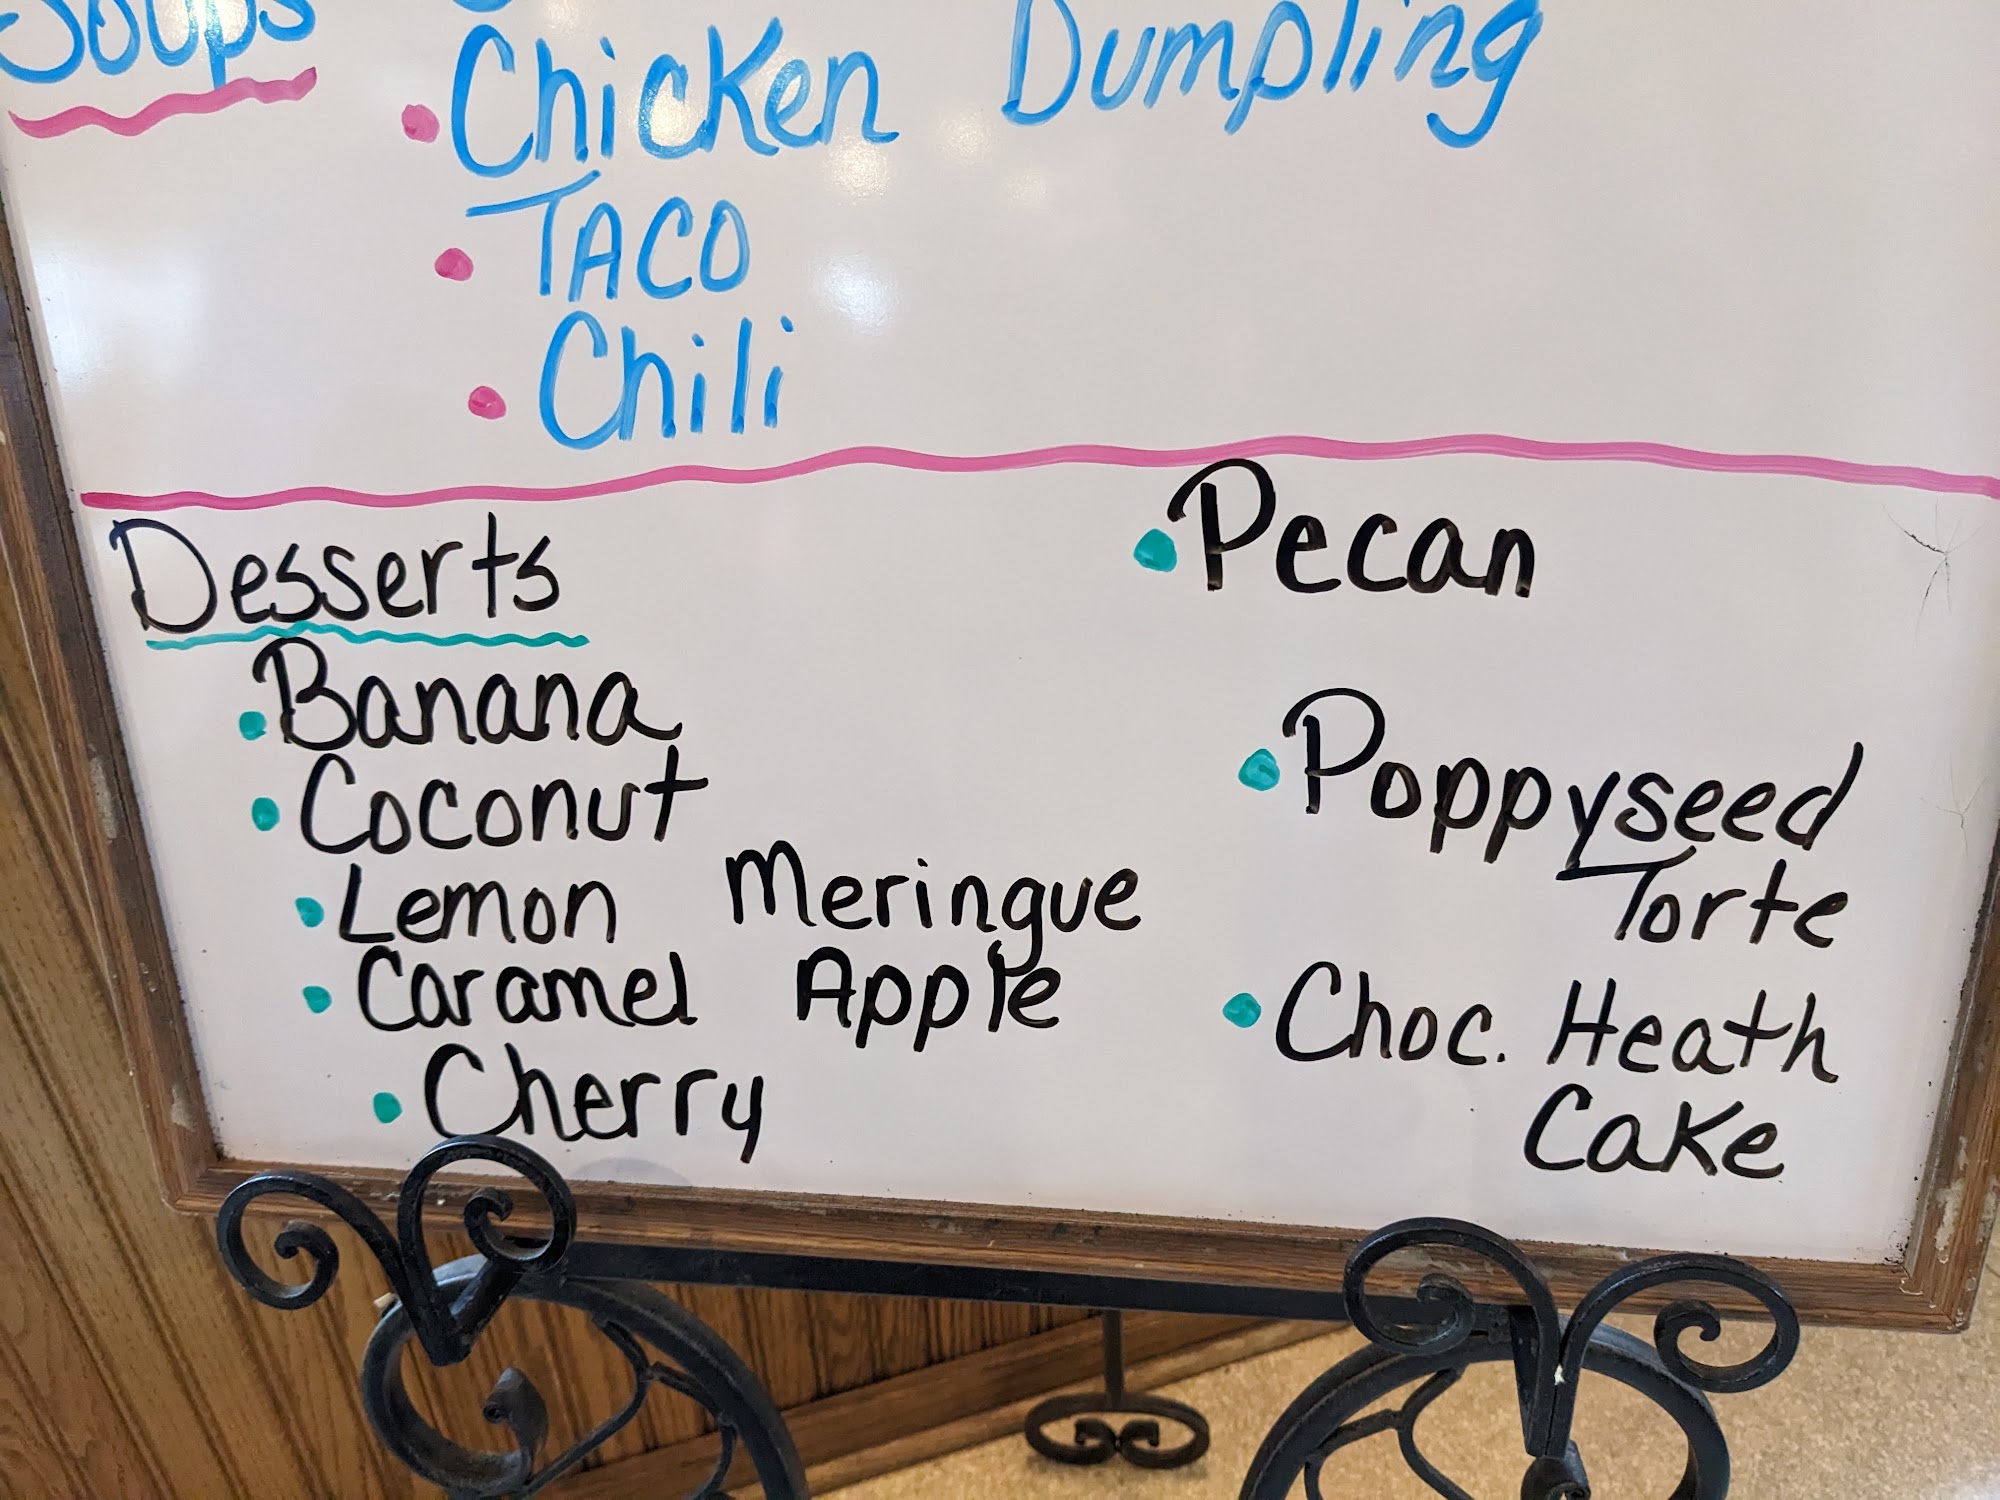 Soups
Chicken Dumpling
TACO
Chili
Desserts
Banana
Coconut
Lemon Meringue
Caramel Apple
Cherry
Pecan
Poppyseed
Torte
Choc. Heath
Cake